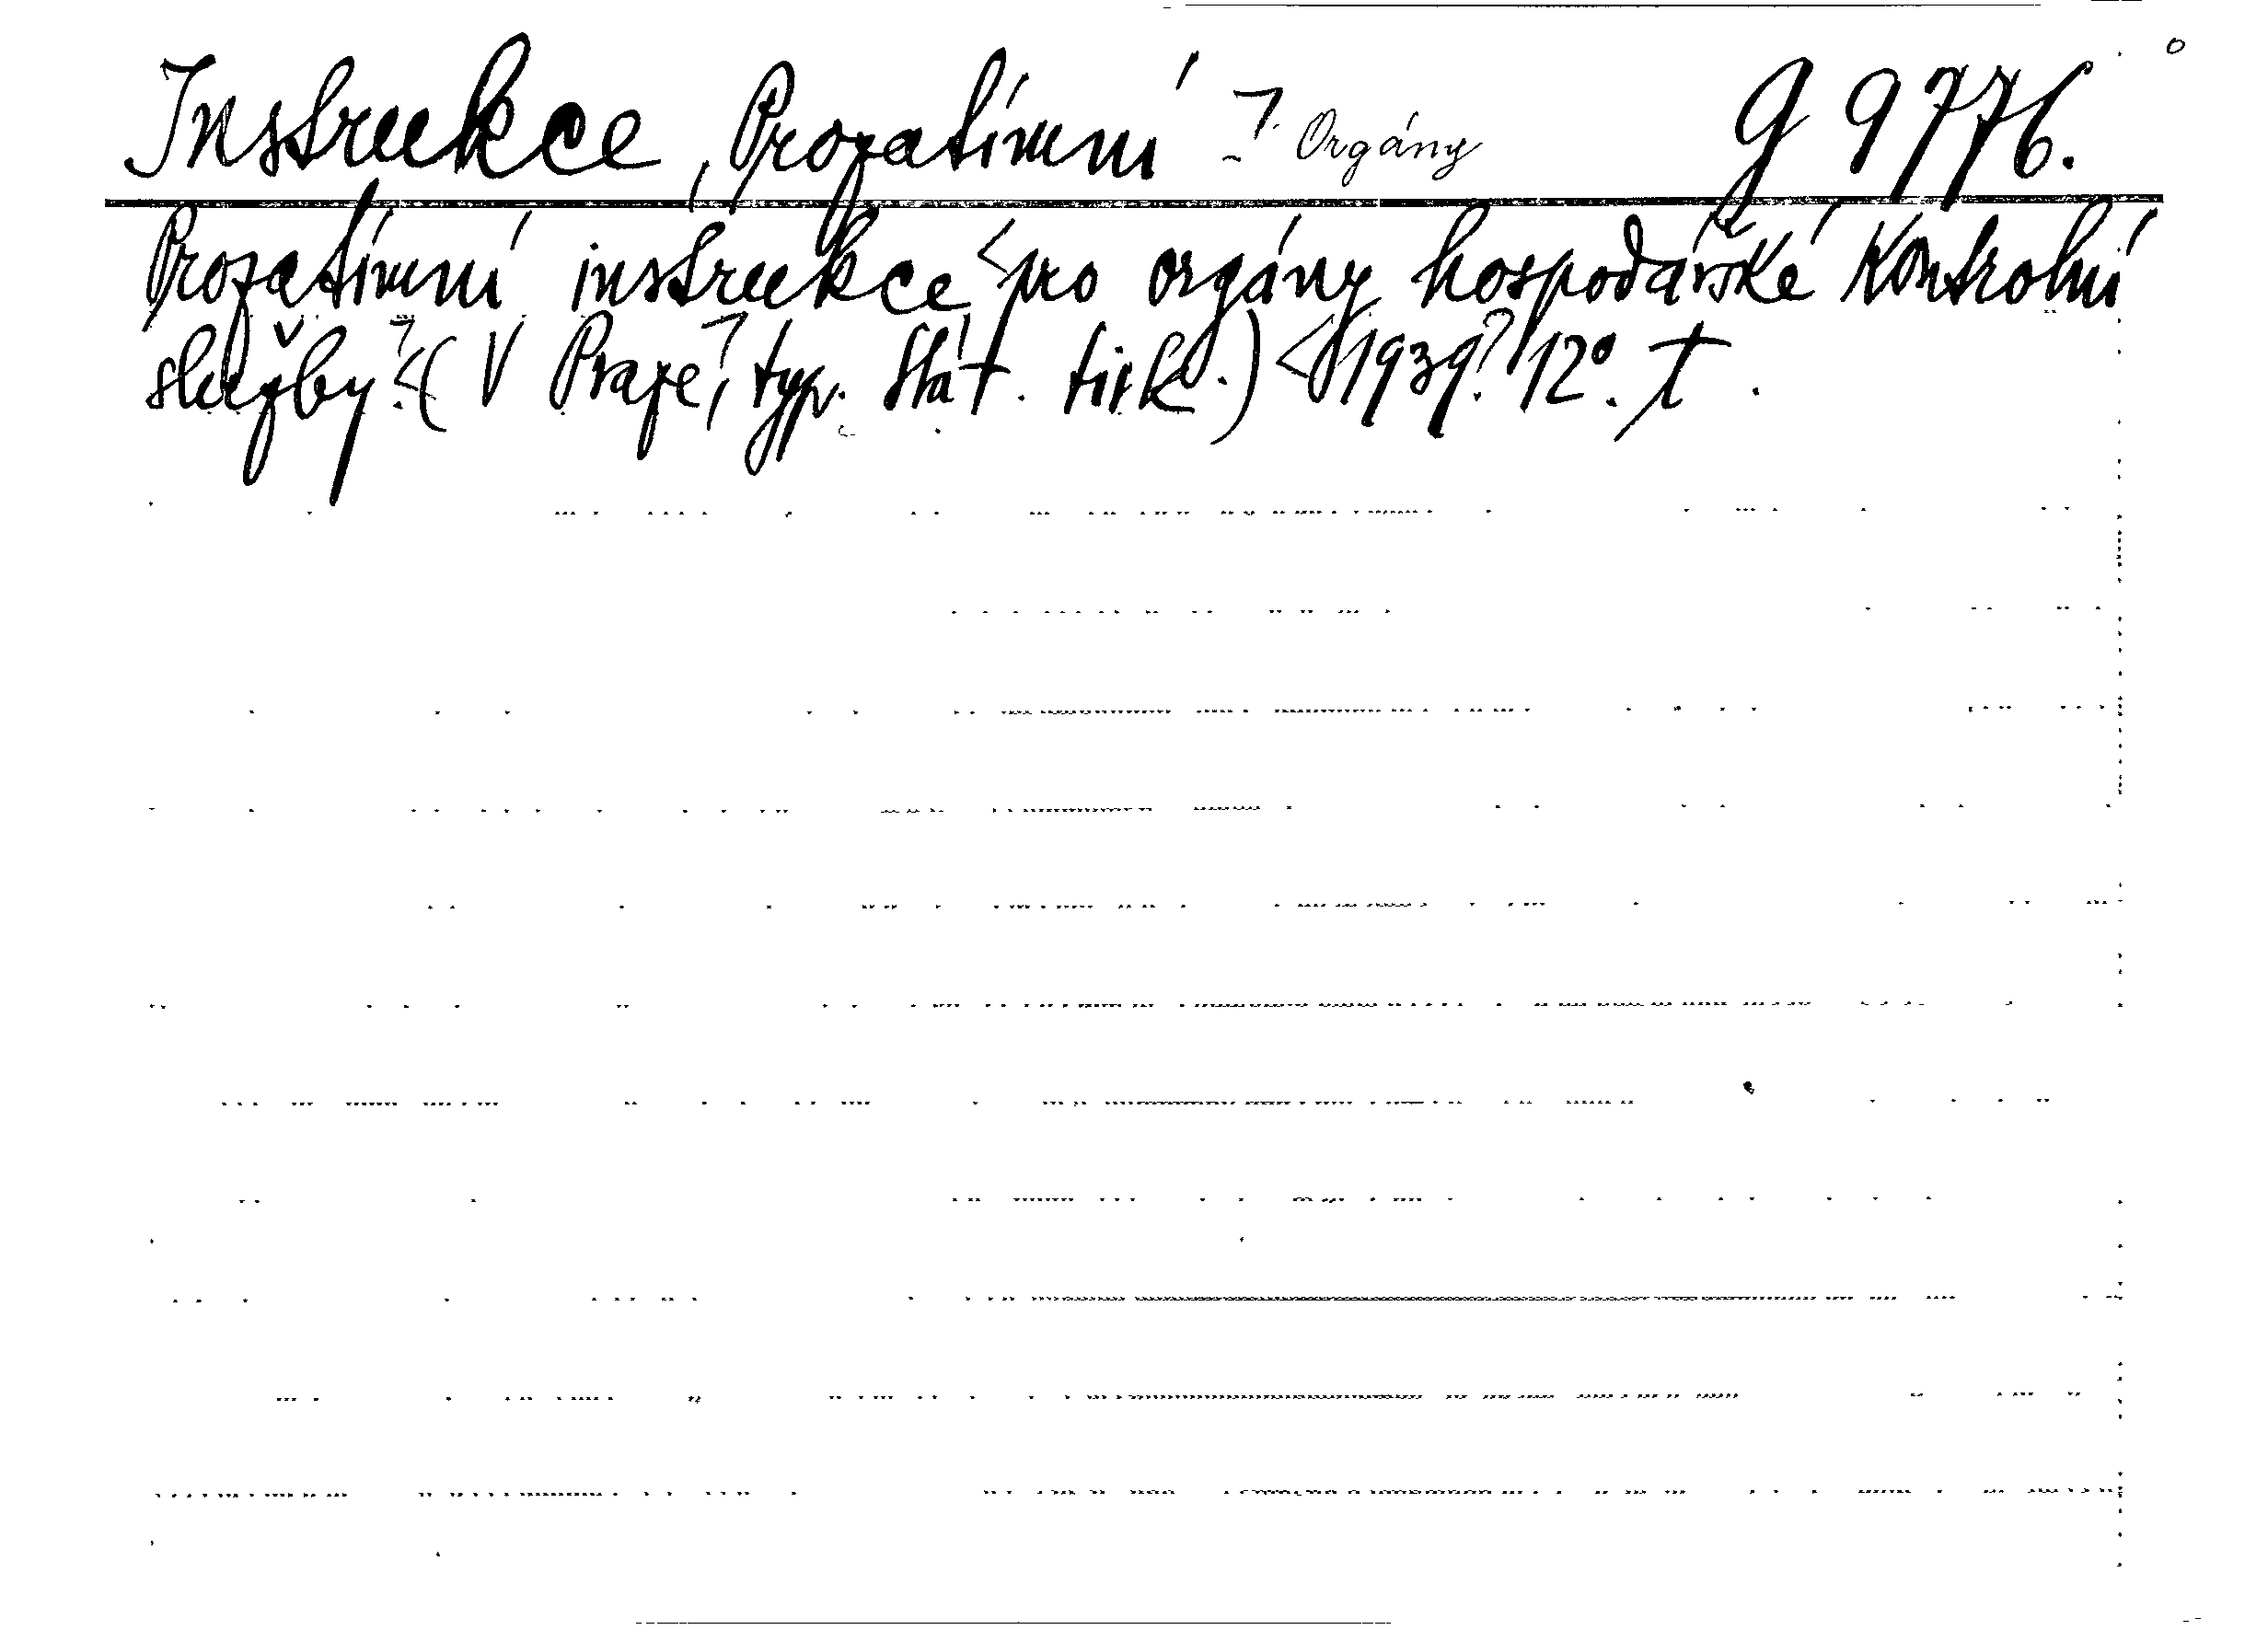 Instrukce, Prozatímní 7. Orgány g 9776.
Prozatímní instrukce pro orgány hospodářské kontrolní
služby. (V Praze, typ. Stát. tisk.) <1939? 12°. t.